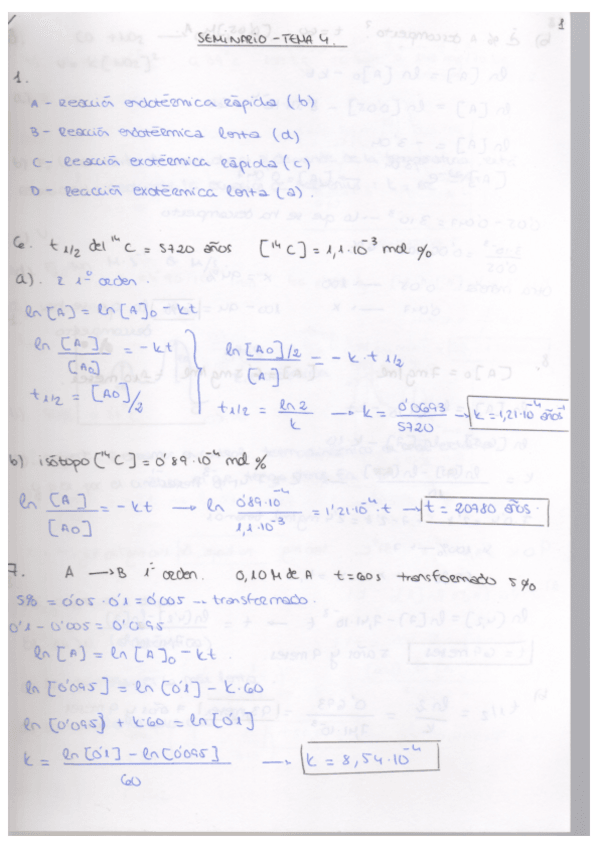 1
SEMINARIO - TEMA 4.
1.
A - Reacción endotérmica rápida (b)
B - Reacción endotérmica lenta (d)
C - Reacción exotérmica rápida (c)
D - Reacción exotérmica lenta (a).
6. t 1/2 del ¹⁴C = 5720 años [¹⁴C] = 1,1·10⁻³ mol %
a). 2 1º orden.
ln [A] = ln [A]₀ - kt
ln [A] / [A₀] = - kt
t 1/2 = [A₀]/2
ln [A₀]/2 / [A] = - k · t 1/2
t 1/2 = ln 2 / k → k = 0'0693 / 5720 → k = 1,21·10⁻⁴ años⁻¹
b) isótopo [¹⁴C] = 0'89·10⁻⁴ mol %
ln [A] / [A₀] = - kt → ln 0'89·10⁻⁴ / 1,1·10⁻³ = 1'21·10⁻⁴·t → t = 20980 años.
7. A → B 1º orden. 0,10 M de A t = 60s transformado 5%
5% = 0'05 · 0'1 = 0'005 → transformado.
0'1 - 0'005 = 0'0095
ln [A] = ln [A]₀ - kt.
ln [0'095] = ln [0'1] - k·60
ln [0'095] + k·60 = ln [0'1]
k = ln [0'1] - ln [0'095] / 60 → k = 8,54·10⁻⁴